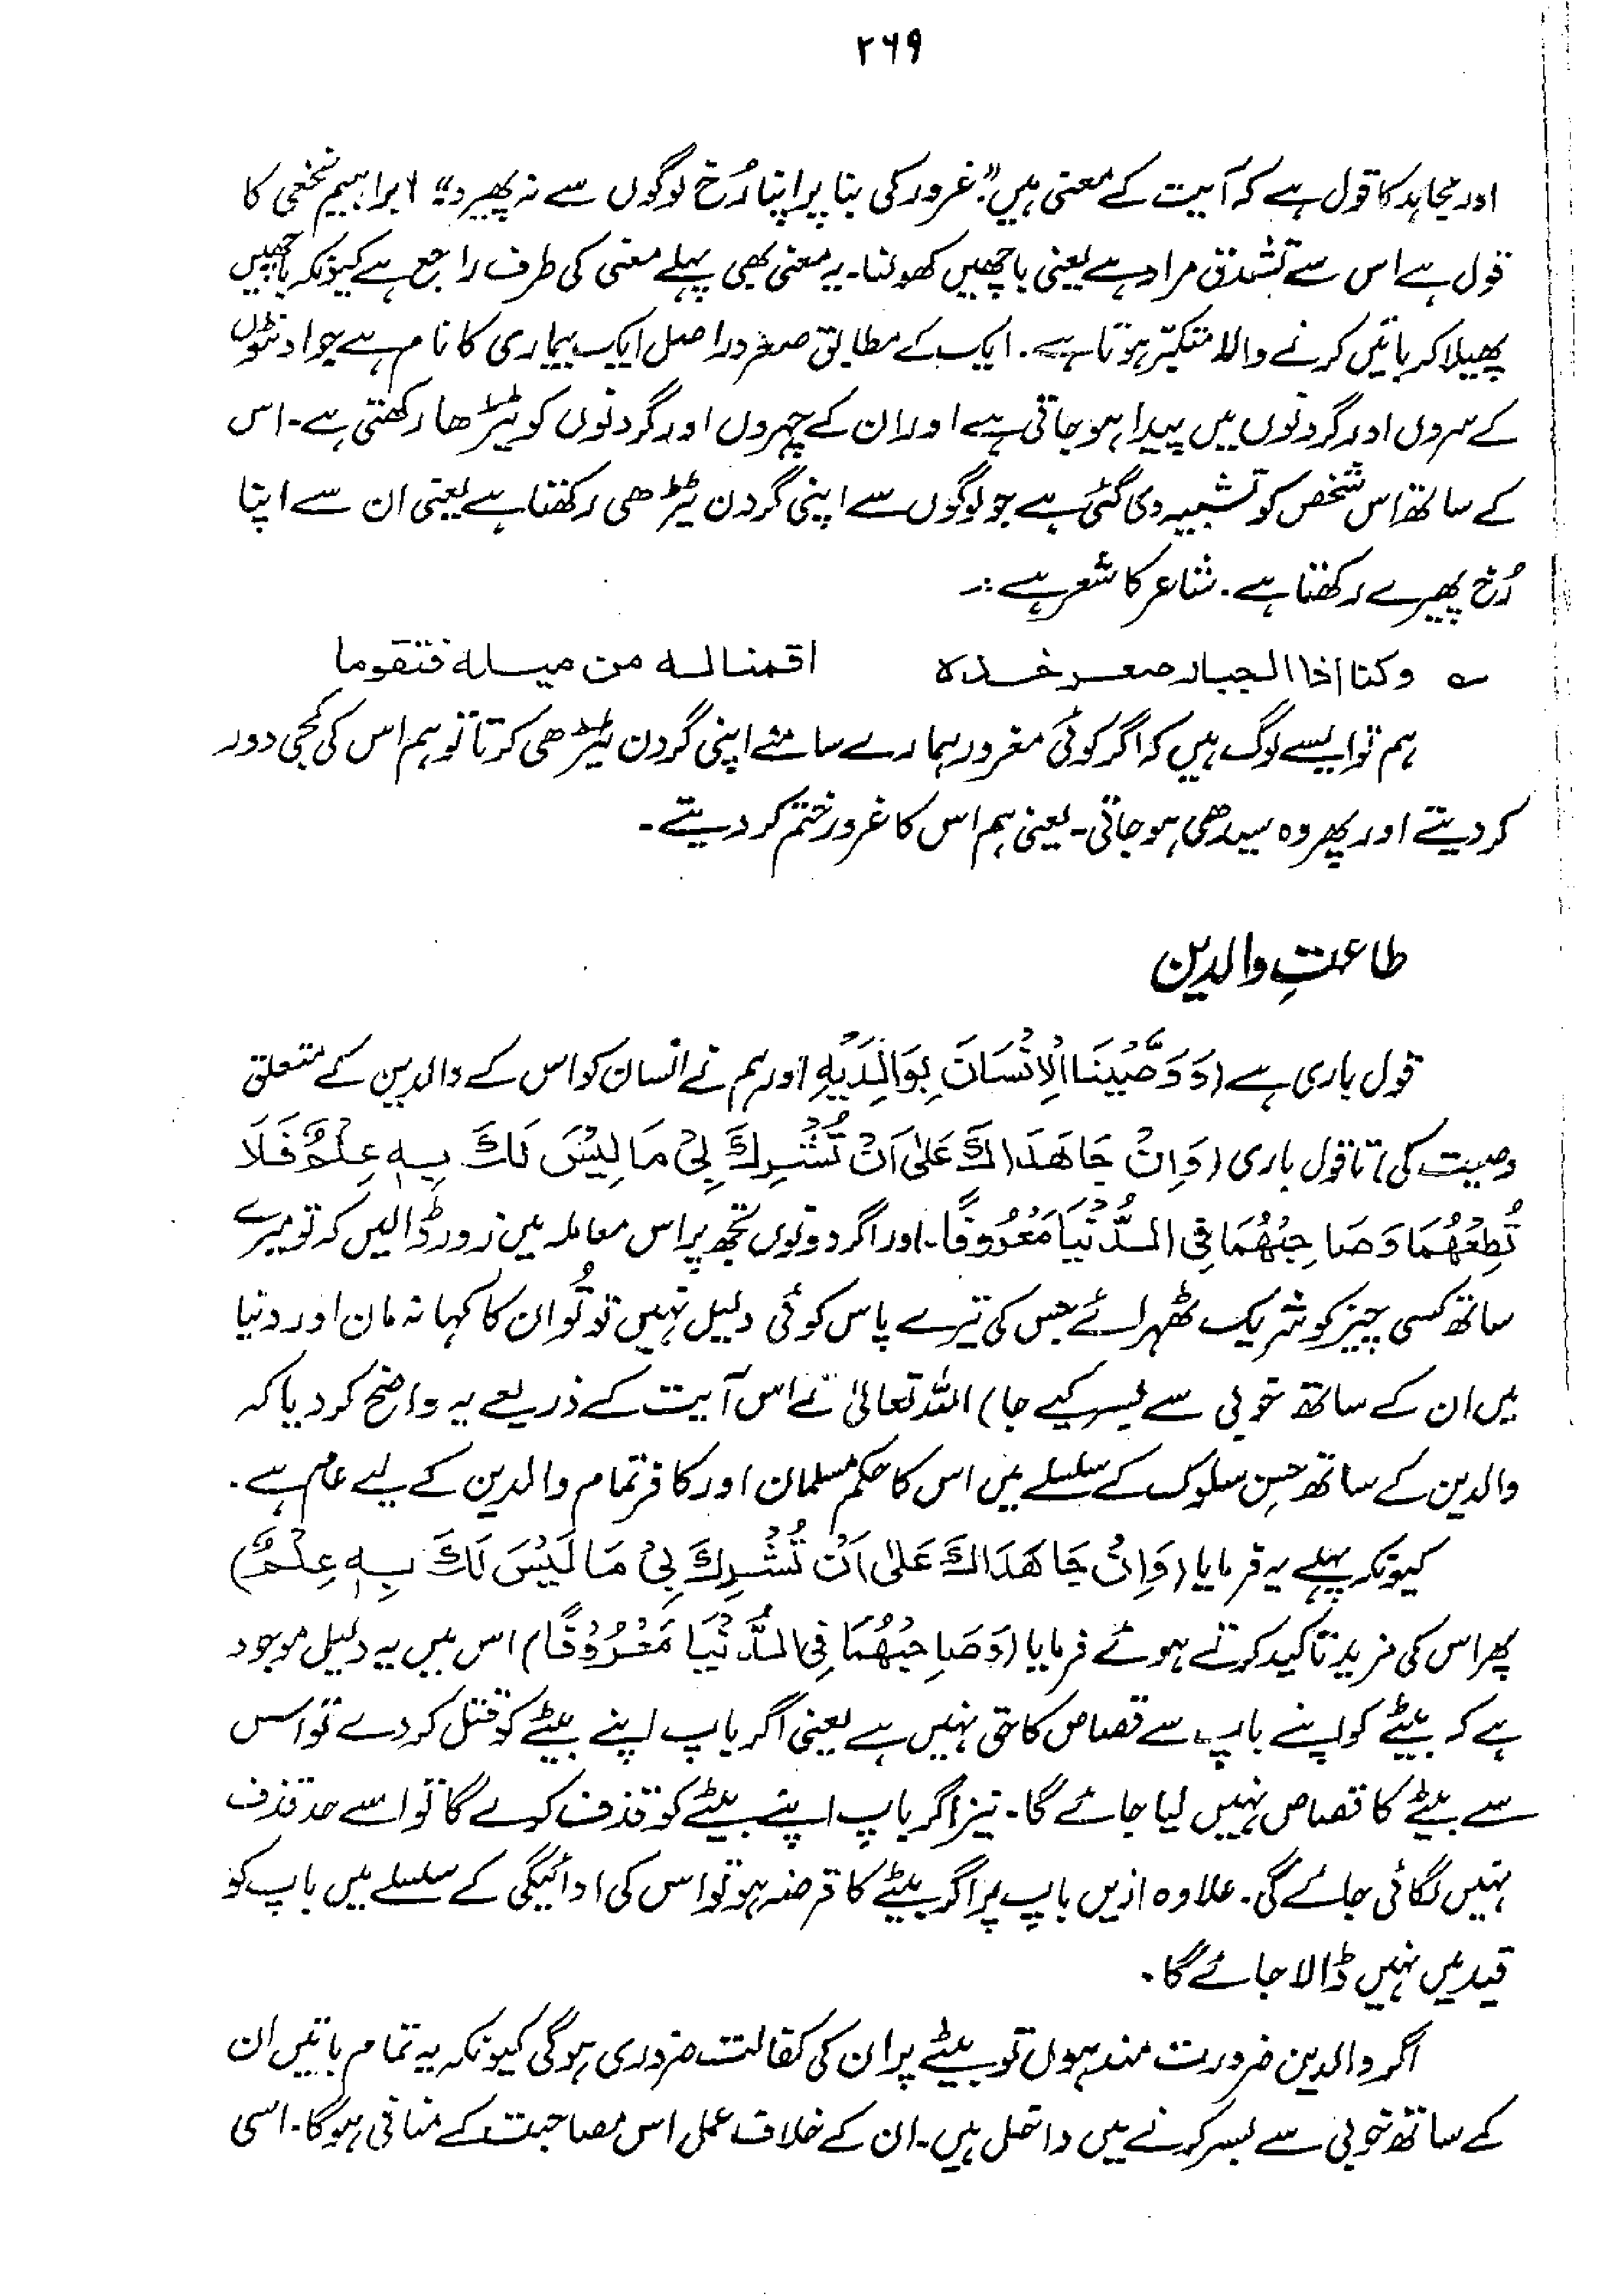 ۲۶۹
اور مجاہد کا قول ہے کہ آیت کے معنی ہیں "غرور کی بنا پر اپنا رُخ لوگوں سے نہ پھیرو" ابراہیم نخعی کا
قول ہے اس سے تشدق مراد ہے یعنی باچھیں کھولنا۔ یہ معنی بھی پہلے معنی کی طرف راجع ہے کیونکہ باچھیں
پھیلا کر باتیں کرنے والا متکبّر ہوتا ہے۔ ایک کے مطابق صعر دراصل ایک بیماری کا نام ہے جو اونٹوں
کے سروں اور گردنوں میں پیدا ہو جاتی ہے اور ان کے چہروں اور گردنوں کو ٹیڑھا رکھتی ہے۔ اس
کے ساتھ اس شخص کو تشبیہ دی گئی ہے جو لوگوں سے اپنی گردن ٹیڑھی رکھتا ہے یعنی ان سے اپنا
رُخ پھیرے رکھتا ہے۔ شاعر کا شعر ہے :۔
؎ وکنا اذا الجبار صعر خدہ اقمنا لہ من میلہ فتقوما
ہم تو ایسے لوگ ہیں کہ اگر کوئی مغرور ہمارے سامنے اپنی گردن ٹیڑھی کرتا تو ہم اس کی کجی دور
کر دیتے اور پھر وہ سیدھی ہو جاتی۔ یعنی ہم اس کا غرور ختم کر دیتے۔
طاعتِ والدین
قول باری ہے (وَوَصَّيْنَا الْاِنْسَانَ بِوَالِدَيْهِ اور ہم نے انسان کو اس کے والدین کے متعلق
وصیت کی) تا قول باری (وَاِنْ جَاهَدَاكَ عَلٰى اَنْ تُشْرِكَ بِيْ مَا لَيْسَ لَكَ بِهٖ عِلْمٌ فَلَا
تُطِعْهُمَا وَصَاحِبْهُمَا فِي الدُّنْيَا مَعْرُوْفًا۔ اور اگر دونوں تجھ پر اس معاملہ میں زور ڈالیں کہ تو میرے
ساتھ کسی چیز کو شریک ٹھہرائے جس کی تیرے پاس کوئی دلیل نہیں تو تُو ان کا کہا نہ مان اور دنیا
میں ان کے ساتھ خوبی سے بسر کیے جا) اللہ تعالیٰ نے اس آیت کے ذریعے یہ واضح کر دیا کہ
والدین کے ساتھ حسنِ سلوک کے سلسلے میں اس کا حکم مسلمان اور کافر تمام والدین کے لیے عام ہے۔
کیونکہ پہلے یہ فرمایا (وَاِنْ جَاهَدَاكَ عَلٰى اَنْ تُشْرِكَ بِيْ مَا لَيْسَ لَكَ بِهٖ عِلْمٌ)
پھر اس کی مزید تاکید کرتے ہوئے فرمایا (وَصَاحِبْهُمَا فِي الدُّنْيَا مَعْرُوْفًا) اس میں یہ دلیل موجود
ہے کہ بیٹے کو اپنے باپ سے قصاص کا حق نہیں ہے یعنی اگر باپ اپنے بیٹے کو قتل کر دے تو اس
سے بیٹے کا قصاص نہیں لیا جائے گا۔ نیز اگر باپ اپنے بیٹے کو قذف کرے گا تو اسے حد قذف
نہیں لگائی جائے گی۔ علاوہ ازیں باپ پر اگر بیٹے کا قرضہ ہو تو اس کی ادائیگی کے سلسلے میں باپ کو
قید میں نہیں ڈالا جائے گا۔
اگر والدین ضرورت مند ہوں تو بیٹے پر ان کی کفالت ضروری ہوگی کیونکہ یہ تمام باتیں ان
کے ساتھ خوبی سے بسر کرنے میں داخل ہیں۔ ان کے خلاف عمل اس مصاحبت کے منافی ہوگا۔ اسی